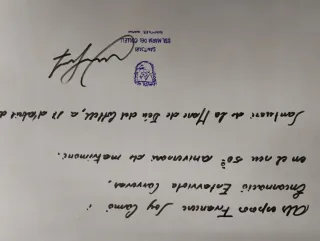 Als esposos Francesc Joy Camó i
Encarnació Estarriola Carreras,
en el seu 50è aniversari de matrimoni.
Santuari de la Mare de Déu del Collell, a 17 d'abril d
SANTUARI